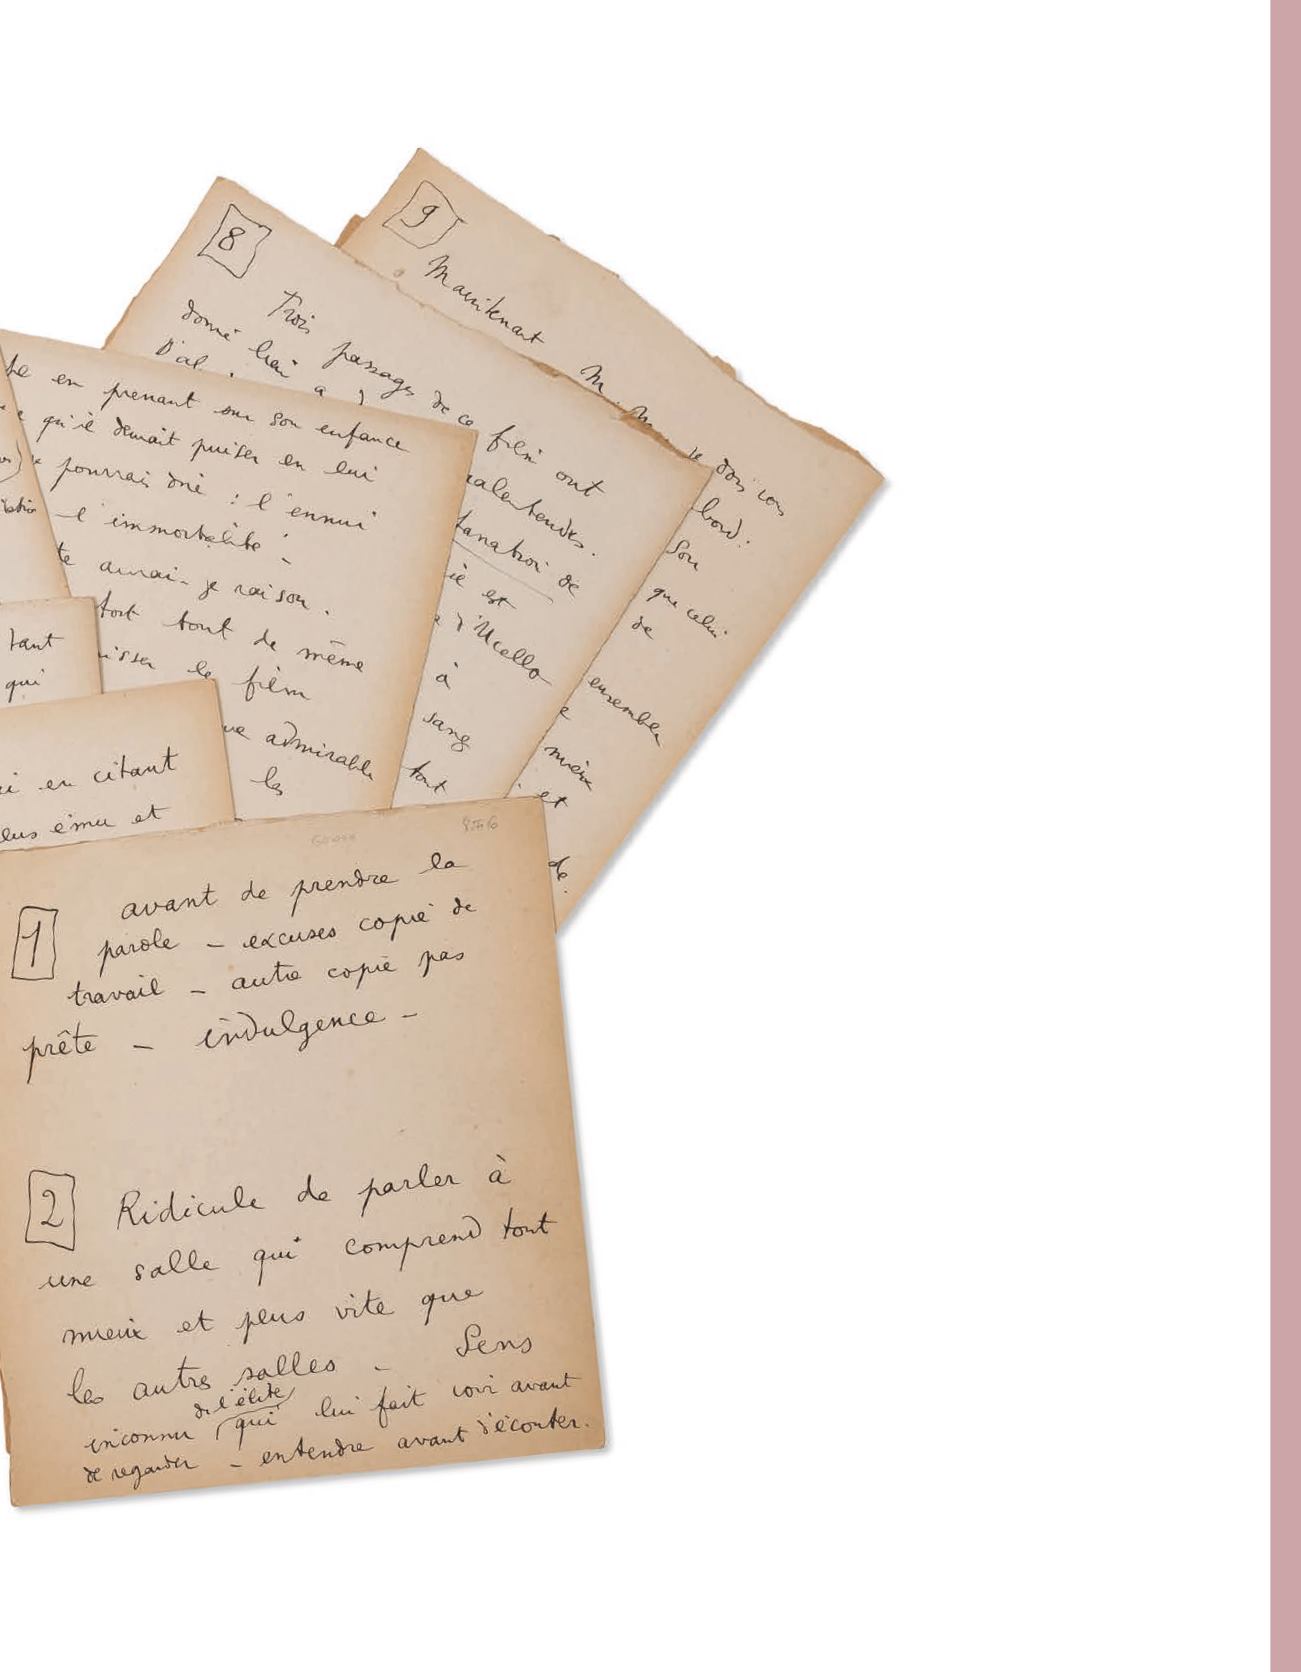 9
Maintenant M.
je dois vous
bord :
Son
que celui
de
ensemble
mieux
et
de.
8
Trois passages de ce film ont
donné lieu à
D'al
malentendus.
de
est
d'Ucello
à
sang
tout
en prenant sur son enfance
qu'il devait puiser en lui
pourrais dire : l'ennui
l'immortalité -
aurai-je raison.
tort tout de même
le film
admirable
les
tant
qui
en citant
plus ému et
1
avant de prendre la
parole - excuses copie de
travail - autre copie pas
prête - indulgence -
2
Ridicule de parler à
une salle qui comprend tout
mieux et plus vite que
les autres salles - Sens
de l'élite
inconnu qui lui fait voir avant
de regarder - entendre avant d'écouter.